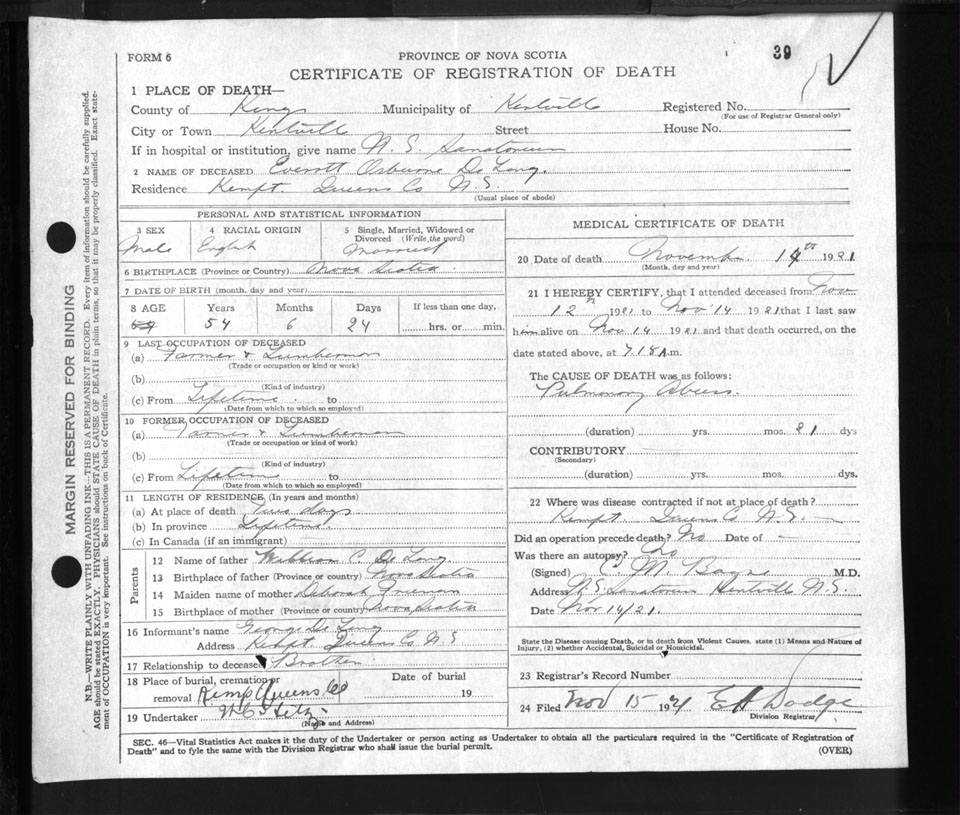 39
FORM 6
PROVINCE OF NOVA SCOTIA
CERTIFICATE OF REGISTRATION OF DEATH
1 PLACE OF DEATH—
County of Kings Municipality of Kentville Registered No.
(For use of Registrar General only)
City or Town Kentville Street House No.
If in hospital or institution, give name N. S. Sanatorium
2 NAME OF DECEASED Everett Osburne De Long.
Residence Kempt. Queens Co N.S.
(Usual place of abode)
PERSONAL AND STATISTICAL INFORMATION
3 SEX 4 RACIAL ORIGIN 5 Single, Married, Widowed or Divorced (Write the word)
Male English Married
6 BIRTHPLACE (Province or Country) Nova Scotia
7 DATE OF BIRTH (month, day and year)
8 AGE Years Months Days If less than one day,
54 6 24 hrs. or min.
9 LAST OCCUPATION OF DECEASED
(a) Farmer & Lumberman
(Trade or occupation or kind or work)
(b)
(Kind of industry)
(c) From Lifetime to
(Date from which to which so employed)
10 FORMER OCCUPATION OF DECEASED
(a) Farmer & Lumberman
(Trade or occupation or kind of work)
(b)
(Kind of industry)
(c) From Lifetime to
(Date from which to which so employed)
11 LENGTH OF RESIDENCE (In years and months)
(a) At place of death two days
(b) In province Lifetime
(c) In Canada (if an immigrant)
Parents
12 Name of father William C. De Long.
13 Birthplace of father (Province or country) Nova Scotia
14 Maiden name of mother Deborah Freeman
15 Birthplace of mother (Province or country) Nova Scotia
16 Informant's name George De Long
Address Kempt. Queens Co N.S
17 Relationship to deceased Brother
18 Place of burial, cremation or removal Kemp Queens Co Date of burial 19
19 Undertaker
(Name and Address)
MEDICAL CERTIFICATE OF DEATH
20 Date of death November 14th 1921
(Month, day and year)
21 I HEREBY CERTIFY, that I attended deceased from Nov
12th 1921 to Nov 14 1921 that I last saw
him alive on Nov 14 1921 and that death occurred, on
date stated above, at 7.15 A.m.
The CAUSE OF DEATH was as follows:
Pulmonary Abcess.
(duration) yrs. mos. 21 dys
CONTRIBUTORY
(Secondary)
(duration) yrs. mos. dys.
22 Where was disease contracted if not at place of death?
Kempt. Queens Co N.S.
Did an operation precede death? No Date of —
Was there an autopsy? No
(Signed) C M Bayne M.D.
Address N.S. Sanatorium Kentville N.S.
Date Nov 14/21.
State the Disease causing Death, or in death from Violent Causes, state (1) Means and Nature of
Injury, (2) whether Accidental, Suicidal or Homicidal.
23 Registrar's Record Number
24 Filed Nov 15 1921 E H Dodge
Division Registrar
SEC. 46—Vital Statistics Act makes it the duty of the Undertaker or person acting as Undertaker to obtain all the particulars required in the "Certificate of Registration of
Death" and to fyle the same with the Division Registrar who shall issue the burial permit.
(OVER)
MARGIN RESERVED FOR BINDING
N.B.—WRITE PLAINLY WITH UNFADING INK—THIS IS A PERMANENT RECORD. Every item of information should be carefully supplied.
AGE should be stated EXACTLY. PHYSICIANS should STATE CAUSE OF DEATH in plain terms, so that it may be properly classified. Exact statement of OCCUPATION is very important. See instructions on back of Certificate.